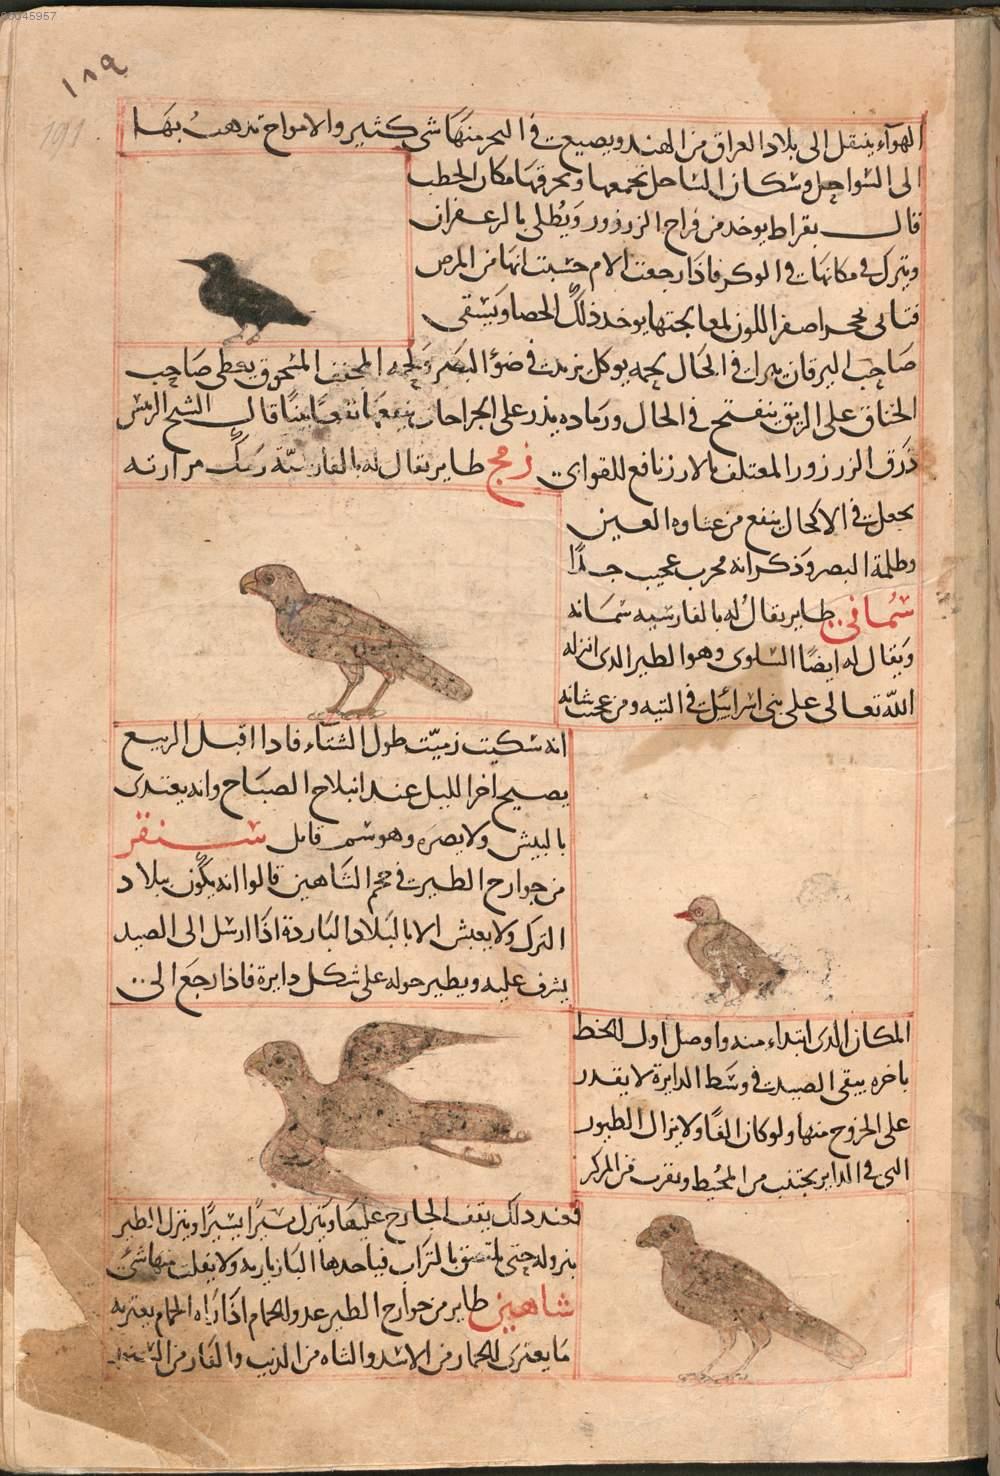 00045957
١٨٩
191
الهوآء ينتقل الى بلاد العراق من الهند ويصيعت فى البحر منها شى كثير والامواج تدهب بها
الى السواحل وسكان الساحل تجمعها وتحرقها مكان الحطب
قال بقراط يوخد من فراح الزرزور ويُطلى بالزعفران
ويترك فى مكانها فى الوكر فاذا رجعت الام حسبت انها من المرض
فتاتى بحجر اصفر اللون لمعالجتها يوخد ذلك الحصا ويسقى
صاحب اليرقان يبرا فى الحال لحمه يوكل يزيد فى ضوء البصر ولحمه المجفف المسحوق يعطى صاحب
الخناق على الريق ينفتح فى الحال ورماده يذر على الجراحات ينفعها نفعًا بينًا قال الشيخ الرئيس
ذرق الزرزور المعتلف بالارز نافع للقوابى زمج طاير يقال له بالفارسية مرارته
يجعل فى الاكحال ينفع من غشاوة العين
وظلمة البصر وذكر انه مجرب عجيب جدًا
سُمانى طاير يقال له بالفارسيه سمانه
ويقال له ايضًا السلوى وهو الطير الدى انزله
الله تعالى على بنى اسرائيل فى التيه ومن عجب شانه
انه سكيت زميّت طول الشتاء فادا اقبل الربيع
يصيح اخر الليل عند انبلاج الصباح وانه يغتدى
بالبيش ولا يضره وهو سم قاتل سنقر
من جوارح الطير فى حجم الشاهين قالوا انه يكون ببلاد
الترك ولا يعيش الا بالبلاد الباردة اذا ارسل الى الصيد
يشرف عليه ويطير حوله على شكل دايرة فاذا رجع الى
المكان الدى ابتداء منه واوصل اول الخط
باخره يبقى الصيد فى وسط الدايرة لا يقدر
على الخروج منها ولو كان الفًا ولا يزال الطيور
التى فى الداير يجتنب من المحيط وتقرب من المركز
فعند دلك يقف الجارح عليها وينزل يسيرًا يسيرًا وينزل الطير
بنزوله حتى يلتصق بالتراب فياحدها البازياريه ولا يفلت منها شئ
شاهين طاير من جوارح الطير عدو الحمام اذا رااه الحمام يعتريه
ما يعترى الحمار من الاسد والشاه من الذيب والفار من السنور